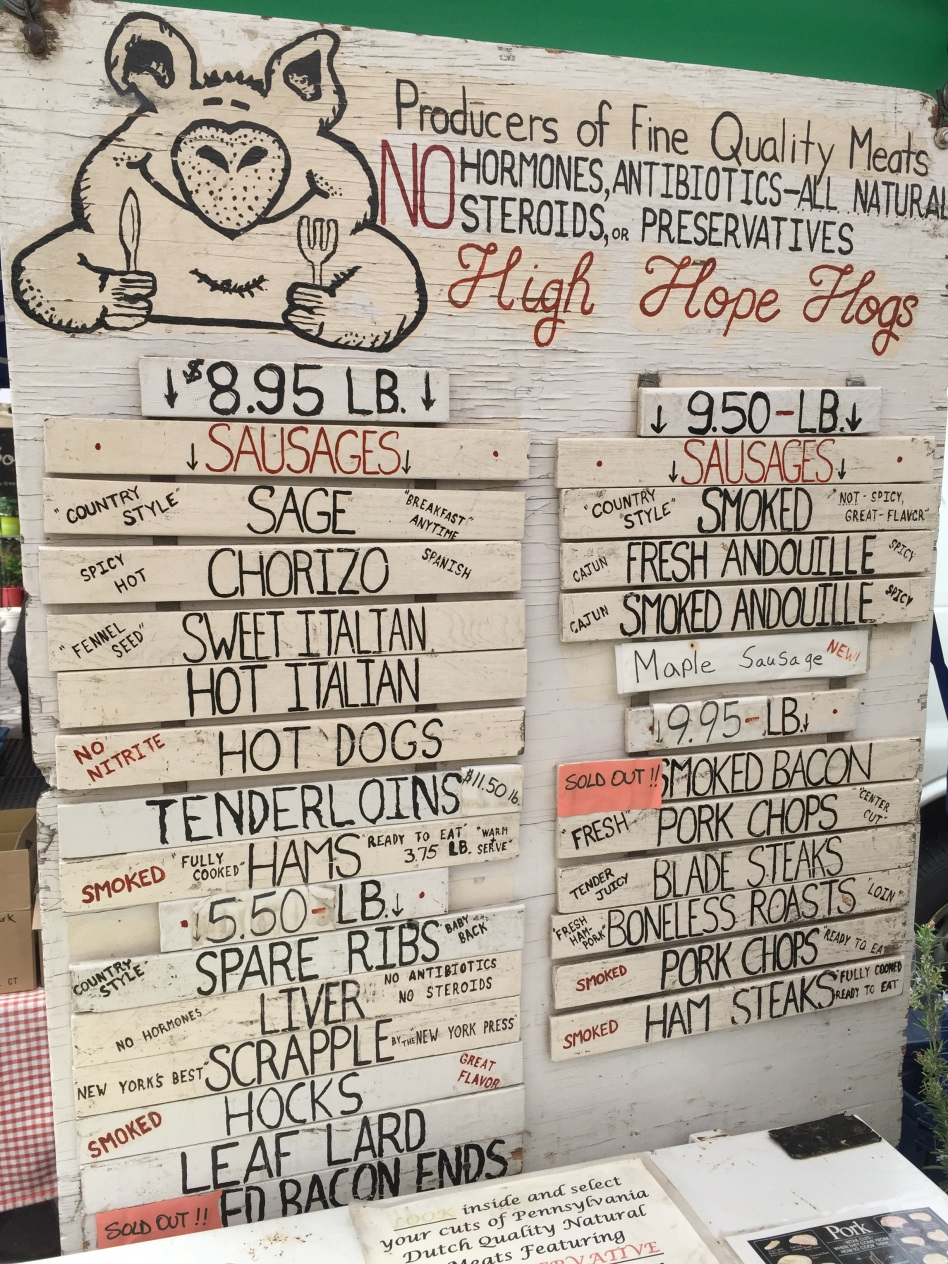 Producers of Fine Quality Meats
NO HORMONES, ANTIBIOTICS-ALL NATURAL
STEROIDS, OR PRESERVATIVES
High Hope Hogs
↓ $8.95 LB. ↓
↓ SAUSAGES ↓
"COUNTRY STYLE" SAGE "BREAKFAST ANYTIME"
SPICY HOT CHORIZO SPANISH
"FENNEL SEED" SWEET ITALIAN
HOT ITALIAN
NO NITRITE HOT DOGS
TENDERLOINS $11.50 lb.
SMOKED "FULLY COOKED" HAMS "READY TO EAT" 3.75 LB. "WARM SERVE"
5.50-LB. ↓
COUNTRY STYLE" SPARE RIBS BABY BACK
NO HORMONES LIVER NO ANTIBIOTICS NO STEROIDS
NEW YORK'S BEST SCRAPPLE BY THE "NEW YORK PRESS"
SMOKED HOCKS GREAT FLAVOR
LEAF LARD
SOLD OUT !! ED BACON ENDS
↓ 9.50-LB. ↓
↓ SAUSAGES ↓
"COUNTRY STYLE" SMOKED "NOT-SPICY, GREAT-FLAVOR"
CAJUN FRESH ANDOUILLE SPICY
CAJUN SMOKED ANDOUILLE SPICY
Maple Sausage NEW!
↓ 9.95-LB. ↓
SOLD OUT !! SMOKED BACON
"FRESH" PORK CHOPS "CENTER CUT"
TENDER JUICY BLADE STEAKS
"FRESH HAM PORK" BONELESS ROASTS "LOIN"
SMOKED PORK CHOPS "READY TO EA
SMOKED HAM STEAKS "FULLY COOKED READY TO EAT
LOOK inside and select
your cuts of Pennsylvania
Dutch Quality Natural
Meats Featuring
RVATIVE
Pork
CT